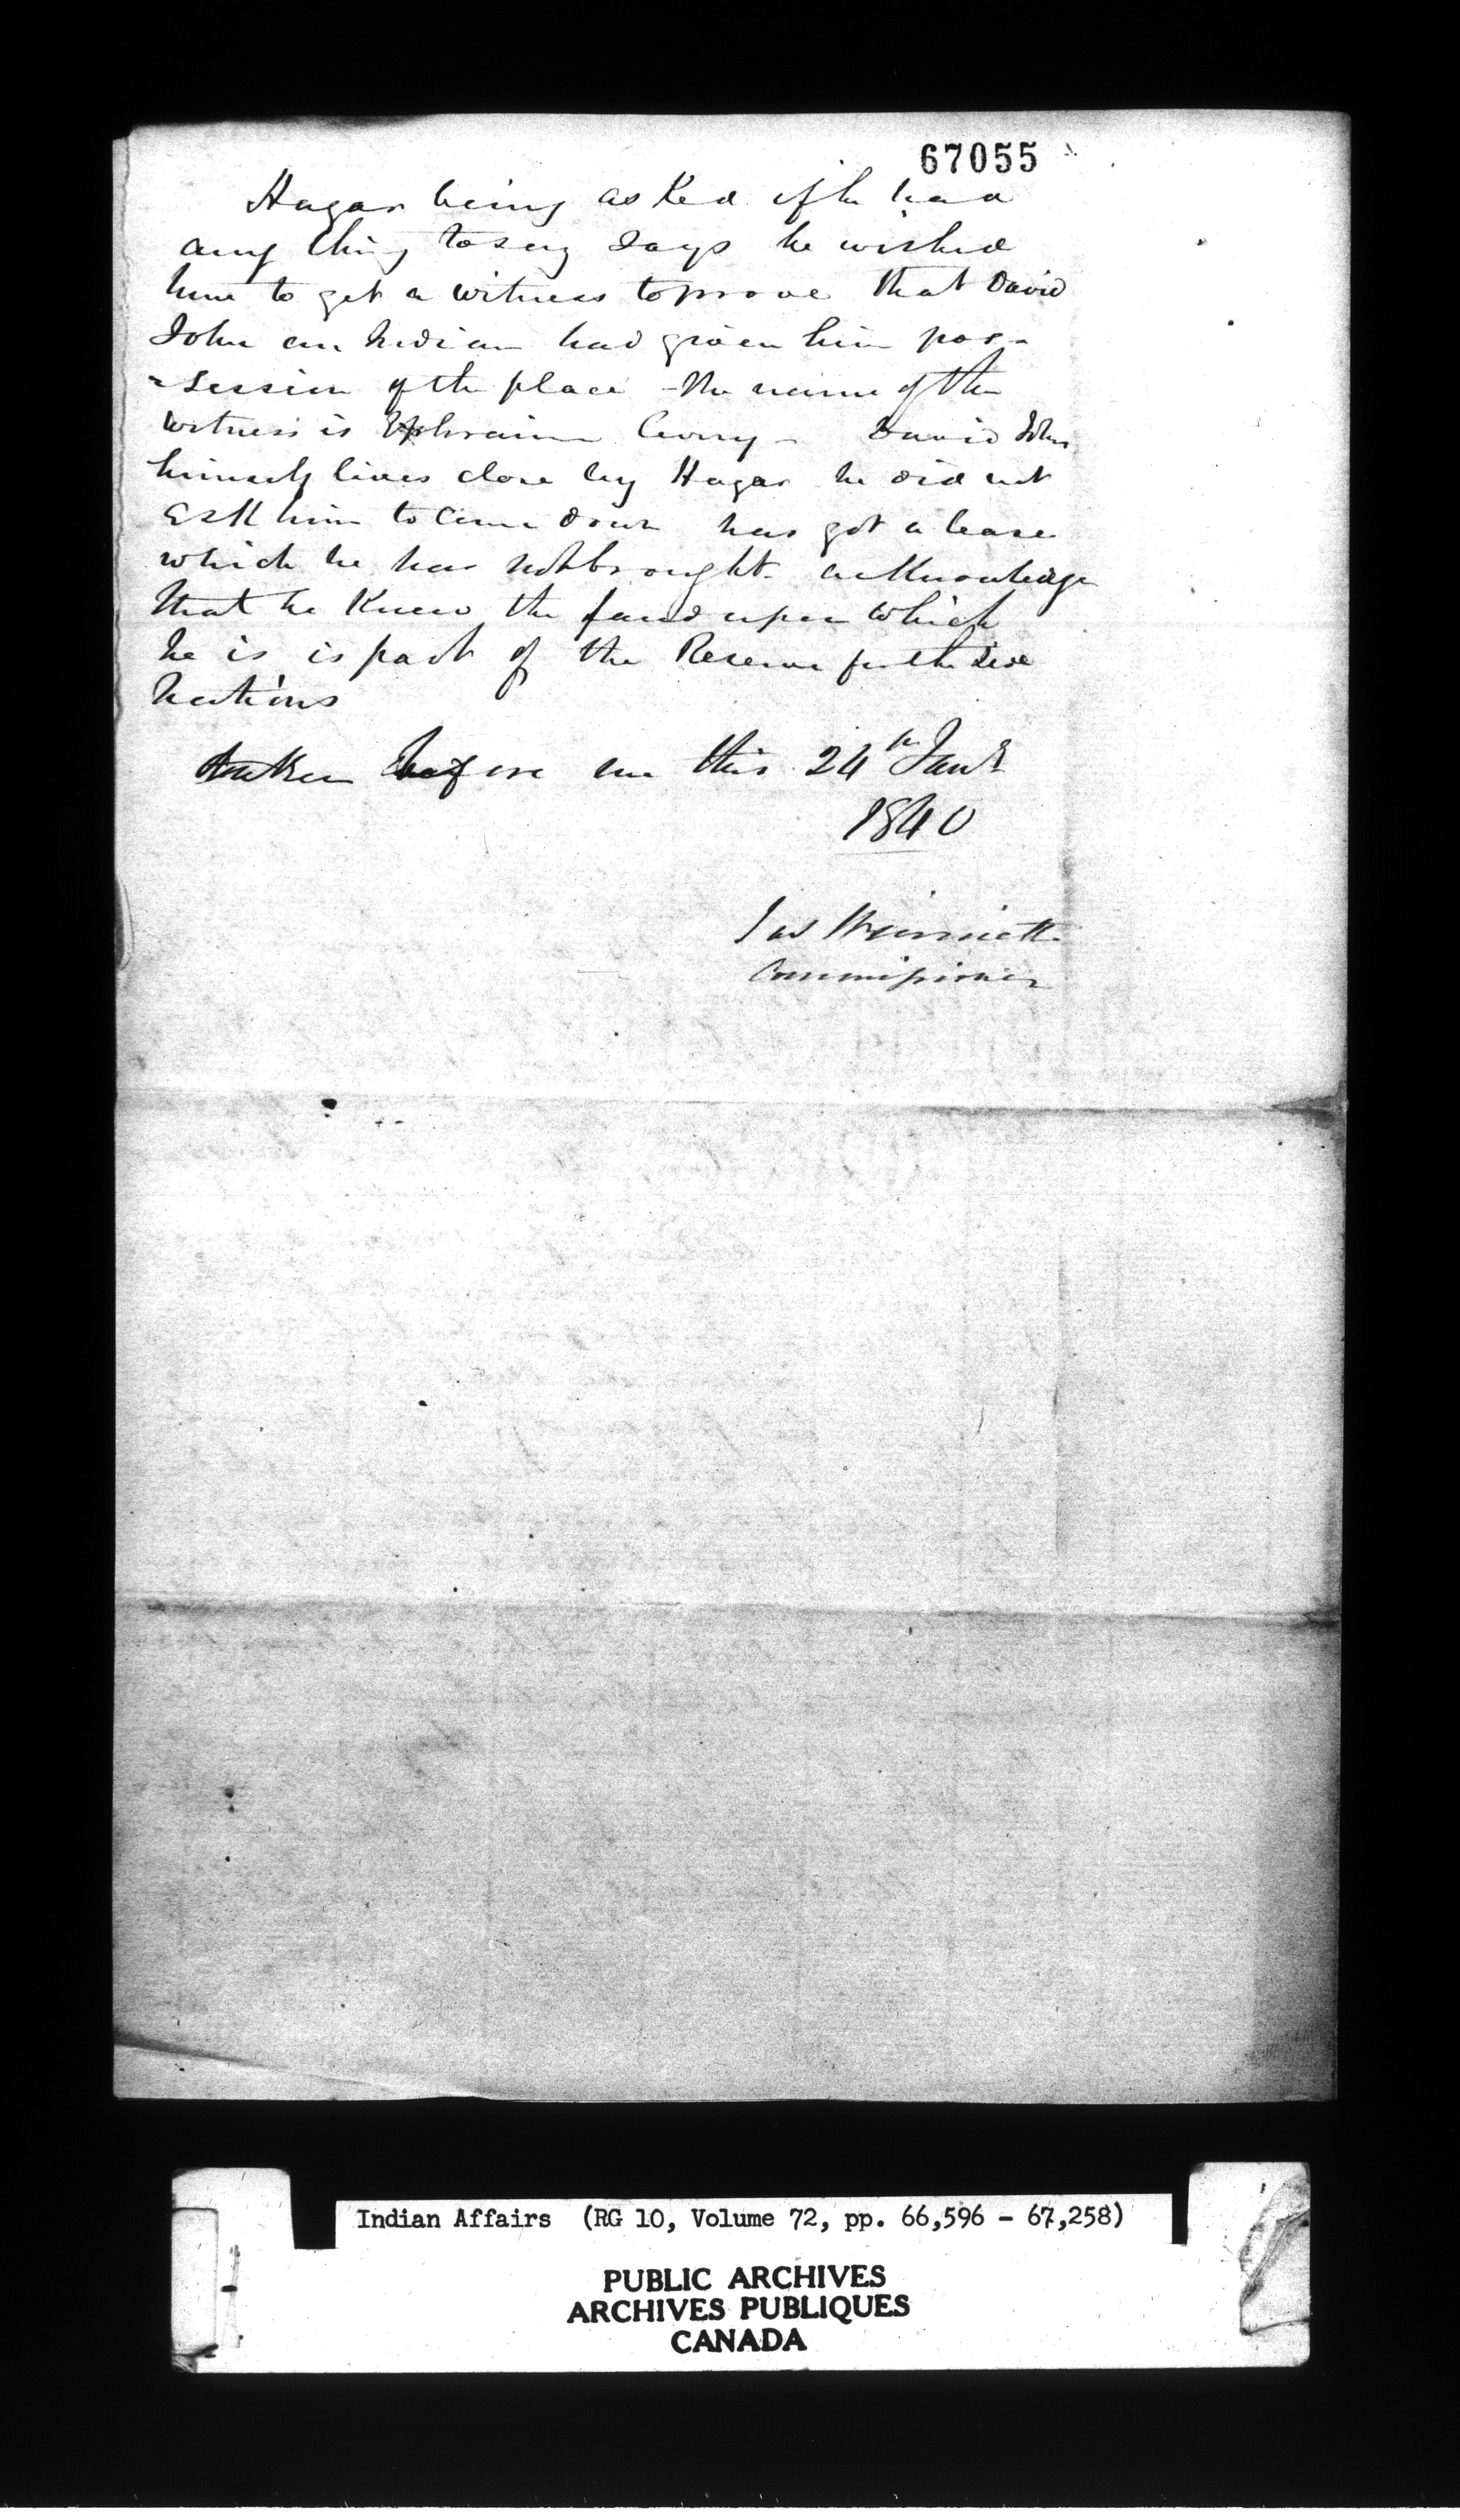 67055
Hagar being asked if he had
any thing to say says he wished
time to get a witness to prove that David
John an Indian had given him pos-
-session of the place - The name of the
witness is Ephraim - David John
himself lives close by Hagar he did not
ask him to come down has got a lease
which he has not brought - acknowledge
that he knew the land upon which
he is is part of the Reserve for the Six
Nations
taken before me this 24th Jany
1840
Jas Winniett
Commissioner
Indian Affairs (RG 10, Volume 72, pp. 66,596 - 67,258)
PUBLIC ARCHIVES
ARCHIVES PUBLIQUES
CANADA